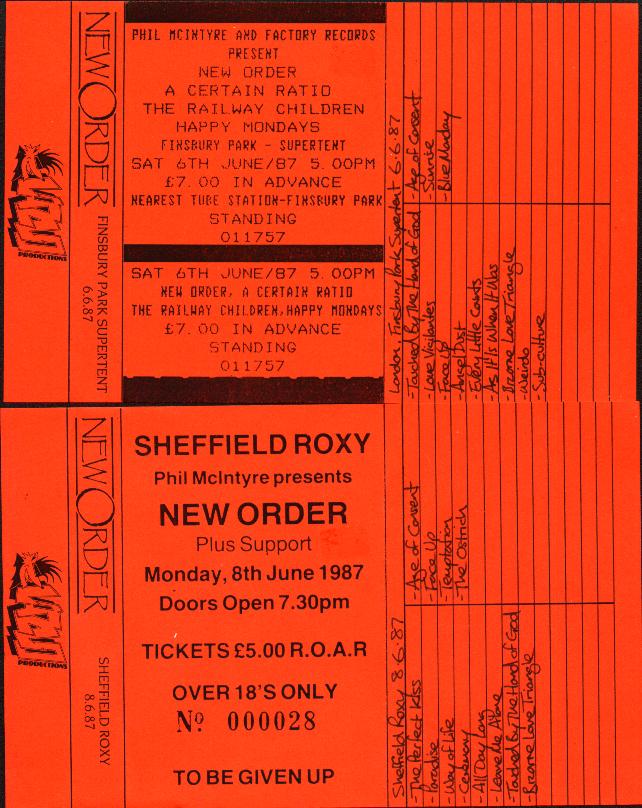 NEW ORDER
FINSBURY PARK SUPERTENT
6.6.87
PRODUCTIONS
PHIL MCINTYRE AND FACTORY RECORDS
PRESENT
NEW ORDER
A CERTAIN RATIO
THE RAILWAY CHILDREN
HAPPY MONDAYS
FINSBURY PARK - SUPERTENT
SAT 6TH JUNE/87 5.00PM
£7.00 IN ADVANCE
NEAREST TUBE STATION-FINSBURY PARK
STANDING
011757
SAT 6TH JUNE/87 5.00PM
NEW ORDER, A CERTAIN RATIO
THE RAILWAY CHILDREN,HAPPY MONDAYS
£7.00 IN ADVANCE
STANDING
011757
London, Finsbury Park Supertent 6.6.87
-Touched By The Hand of God
-Love Vigilantes
-Face Up
-Angel Dust
-Every Little Counts
-As It Is When It Was
-Bizarre Love Triangle
-Weirdo
-Sub-culture
-Age of Consent
-Sunrise
-Blue Monday
NEW ORDER
SHEFFIELD ROXY
8.6.87
PRODUCTIONS
SHEFFIELD ROXY
Phil McIntyre presents
NEW ORDER
Plus Support
Monday, 8th June 1987
Doors Open 7.30pm
TICKETS £5.00 R.O.A.R
OVER 18'S ONLY
No 000028
TO BE GIVEN UP
Sheffield Roxy 8.6.87
-The Perfect Kiss
-Paradise
-Way of Life
-Ceremony
-All Day Long
-Leave Me Alone
-Touched By The Hand of God
-Bizarre Love Triangle
-Age of Consent
-Face Up
-Temptation
-The Ostrich